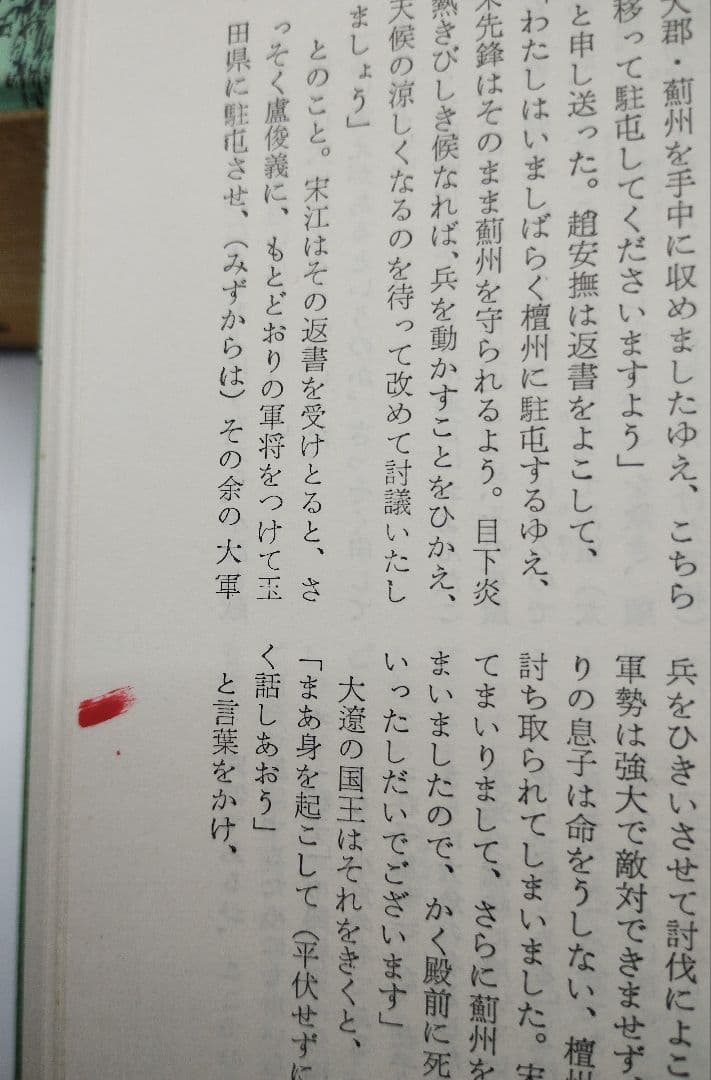 大郡・薊州を手中に収めましたゆえ、こちら
移って駐屯してくださいますよう」
と申し送った。趙安撫は返書をよこして、
「わたしはいましばらく檀州に駐屯するゆえ、
宋先鋒はそのまま薊州を守られるよう。目下炎
熱きびしき候なれば、兵を動かすことをひかえ、
天候の涼しくなるのを待って改めて討議いたし
ましょう」
とのこと。宋江はその返書を受けとると、さ
っそく盧俊義に、もとどおりの軍将をつけて玉
田県に駐屯させ、(みずからは)その余の大軍
兵をひきいさせて討伐によこ
軍勢は強大で敵対できませず、
りの息子は命をうしない、檀州
討ち取られてしまいました。宋
てまいりまして、さらに薊州を
まいましたので、かく殿前に死
いったしだいでございます」
大遼の国王はそれをきくと、
「まあ身を起こして(平伏せずに
く話しあおう」
と言葉をかけ、